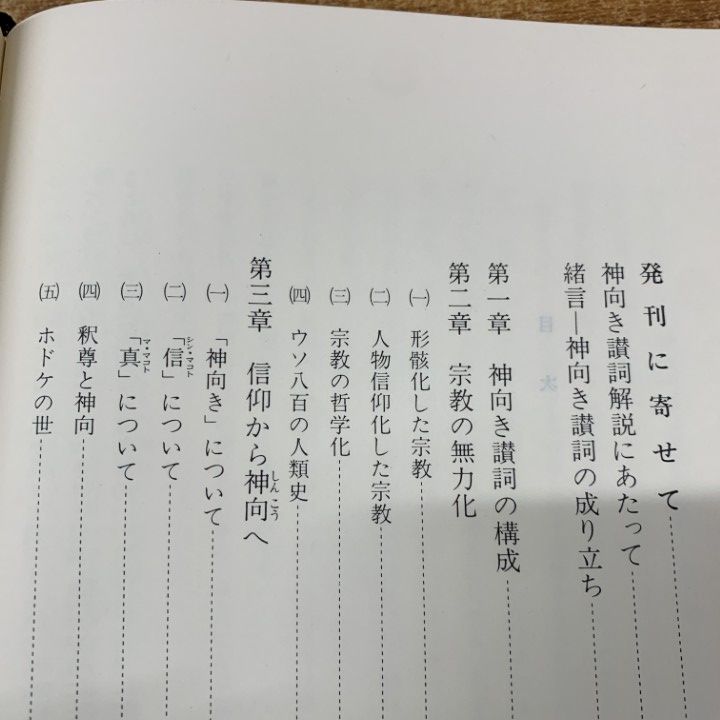 発刊に寄せて
神向き讃詞解説にあたって
緒言―神向き讃詞の成り立ち
目次
第一章 神向き讃詞の構成
第二章 宗教の無力化
㈠ 形骸化した宗教
㈡ 人物信仰化した宗教
㈢ 宗教の哲学化
㈣ ウソ八百の人類史
第三章 信仰から神向へ
しんこう
㈠ 「神向き」について
㈡ 「信」について
シン・マコト
㈢ 「真」について
マ・マコト
㈣ 釈尊と神向
㈤ ホドケの世